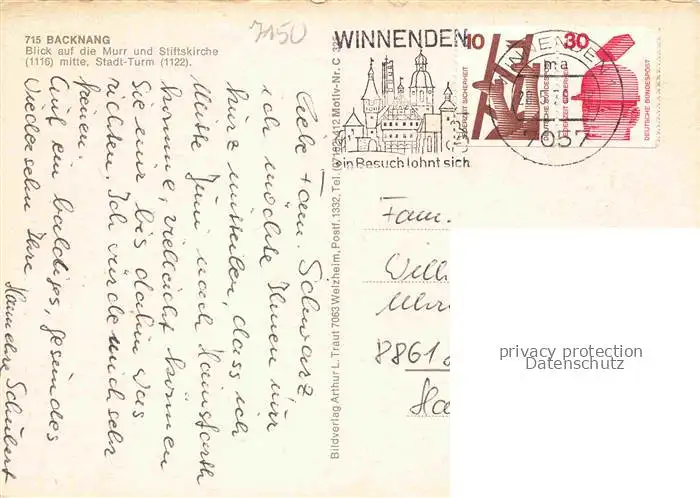 715 BACKNANG
Blick auf die Murr und Stiftskirche
(1116) mitte, Stadt-Turm (1122).
7150
WINNENDEN
ein Besuch lohnt sich
WINNENDEN
ma
7057
10
30
JEDERZEIT SICHERHEIT
DEUTSCHE BUNDESPOST
JEDERZEIT SICHERHEIT
DEUTSCHE BUNDESPOST
Bildverlag Arthur L. Traut 7063 Welzheim, Postf. 1332, Tel. (07182) Motiv-Nr. C
Liebe Fam. Schwarz
ich möchte Ihnen nur
kurz mitteilen, dass ich
Mitte Juni nach Hainsfarth
komme, vielleicht können
Sie mir bis dahin was
richten. Ich würde mich sehr
freuen.
Auf ein baldiges, gesundes
Wiedersehn Ihre
Hannelore Schubert
Fam.
Will
8861
Ha
privacy protection
Datenschutz